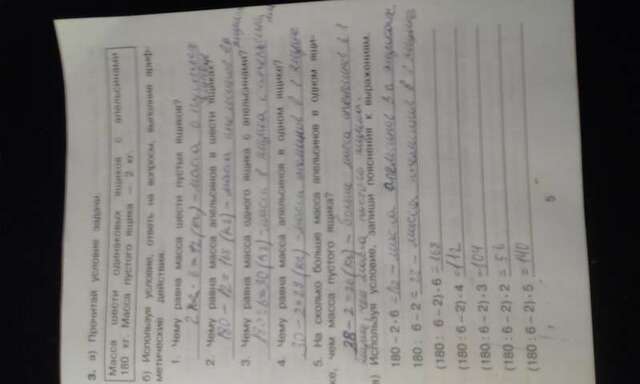 3. а) Прочитай условие задачи.
Масса шести одинаковых ящиков с апельсинами
180 кг. Масса пустого ящика — 2 кг.
б) Используя условие, ответь на вопросы, выполнив ариф-
метические действия.
1. Чему равна масса шести пустых ящиков?
2 кг · 6 = 12 (кг) - масса 6 пустых
2. Чему равна масса апельсинов в шести ящиках?
180 - 12 = 168 (кг) - масса апельсинов в 6
3. Чему равна масса одного ящика с апельсинами?
180:6=30 (кг) - масса 1 ящика с апельсин
4. Чему равна масса апельсинов в одном ящике?
30-2=28 (кг) - масса апельсинов в 1 ящике
5. На сколько больше масса апельсинов в одном ящи-
ке, чем масса пустого ящика?
28-2=26 (кг) - больше масса апельсинов в 1
ящике, чем масса пустого ящика.
) Используя условие, запиши пояснения к выражениям.
180 - 2 · 6 = - масса апельсинов в ящиках
180 : 6 - 2 = - масса апельсинов в 1 ящике
(180 : 6 - 2) · 6 = 168
(180 : 6 - 2) · 4 = 112
(180 : 6 - 2) · 3 = 104
(180 : 6 - 2) · 2 = 56
(180 : 6 - 2) · 5 = 140
5